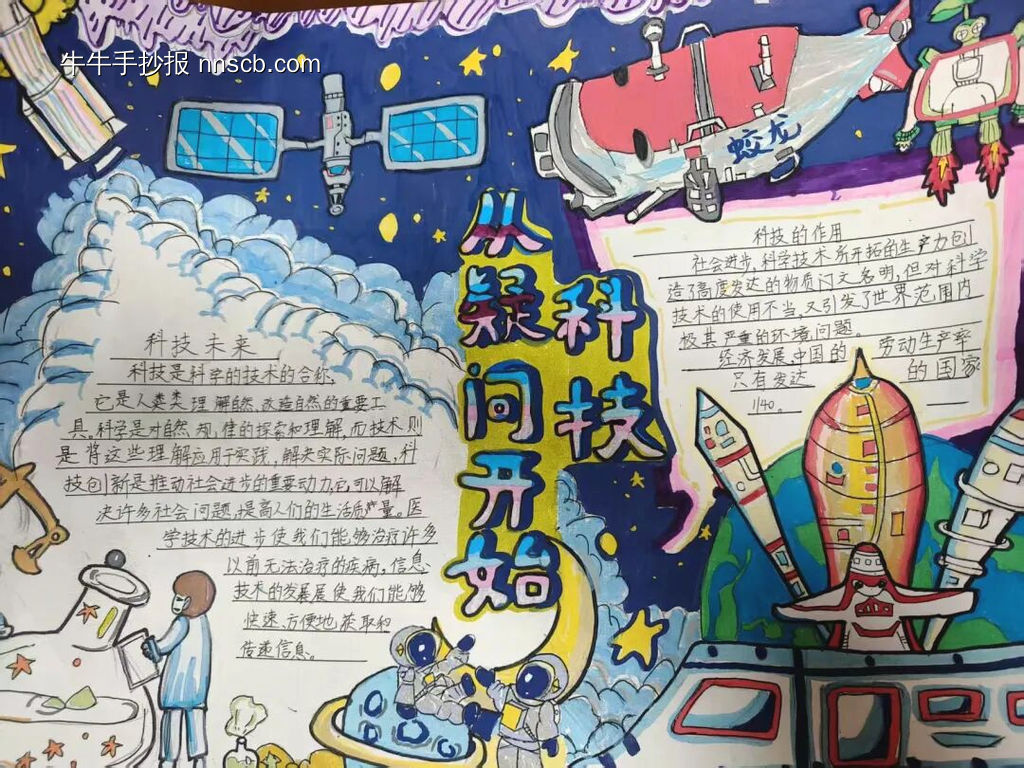 牛牛手抄报 nnscb.com
蛟龙
从疑问开始
科技
科技未来
科技是科学的技术的合称,
它是人类类理解自然,改造自然的重要工
具。科学是对自然规律的探索和理解,而技术则
是将这些理解应用于实践,解决实际问题,科
技创新是推动社会进步的重要动力,它可以解
决许多社会问题,提高人们的生活质量。医
学技术的进步使我们能够治疗许多
以前无法治疗的疾病,信息
技术的发展展使我们能够
快速、方便地获取和
传递信息。
科技的作用
社会进步,科学技术所开拓的生产力创
造了高度发达的物质文名明,但对科学
技术的使用不当,又引发了世界范围内
极其严重的环境问题。
经济发展中国的劳动生产率
只有发达的国家
1/40。